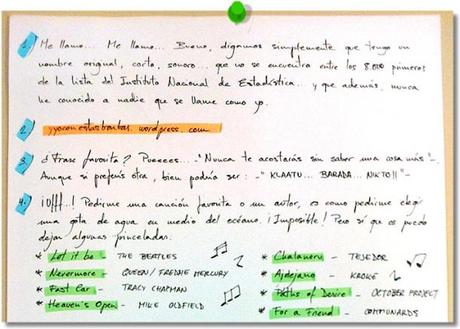 1. Me llamo... Me llamo... Bueno, digamos simplemente que tengo un
nombre original, corto, sonoro... que no se encuentra entre los 8.000 primeros
de la lista del Instituto Nacional de Estadística... y que además, nunca
he conocido a nadie que se llame como yo.
2. yyoconestasbarbas.wordpress.com
3. ¿Frase favorita? Pueeees... "Nunca te acostarás sin saber una cosa más"-.
Aunque si preferís otra, bien podría ser: -"KLAATU... BARADA... NIKTO!!"-
4. ¡Ufff..! Pedirme una canción favorita o un autor, es como pedirme elegir
una gota de agua en medio del océano. ¡Imposible! Pero sí que os puedo
dejar algunas pinceladas.
* Let it be - THE BEATLES
* Nevermore - QUEEN / FREDDIE MERCURY
* Fast Car - TRACY CHAPMAN
* Heaven's Open - MIKE OLDFIELD
* Chalaneru - TEJEDOR
* Ajdejano - KROKE
* Paths of Desire - OCTOBER PROJECT
* For a Friend - COMMUNARDS